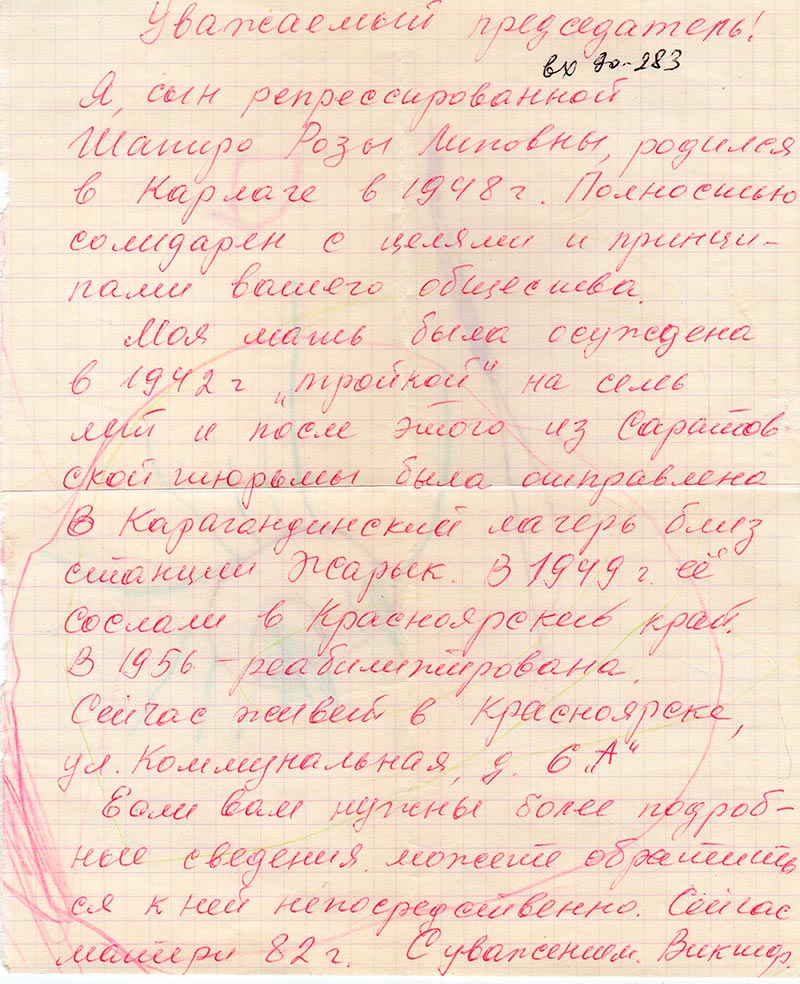 Уважаемый председатель!
вх 90-283
Я, сын репрессированной
Шапиро Розы Липовны, родился
в Карлаге в 1948 г. Полностью
солидарен с целями и принци-
пами вашего общества.
Моя мать была осуждена
в 1942 г „тройкой“ на семь
лет и после этого из Саратов
ской тюрьмы была отправлена
В Карагандинский лагерь близ
станции Жарык. В 1949 г. её
сослали в Красноярский край.
В 1956 – реабилитирована.
Сейчас живет в Красноярске,
ул. Коммунальная, д. 6 „А“
Если вам нужны более подроб-
ные сведения можете обратить
ся к ней непосредственно. Сейчас
матери 82 г. С уважением. Виктор.